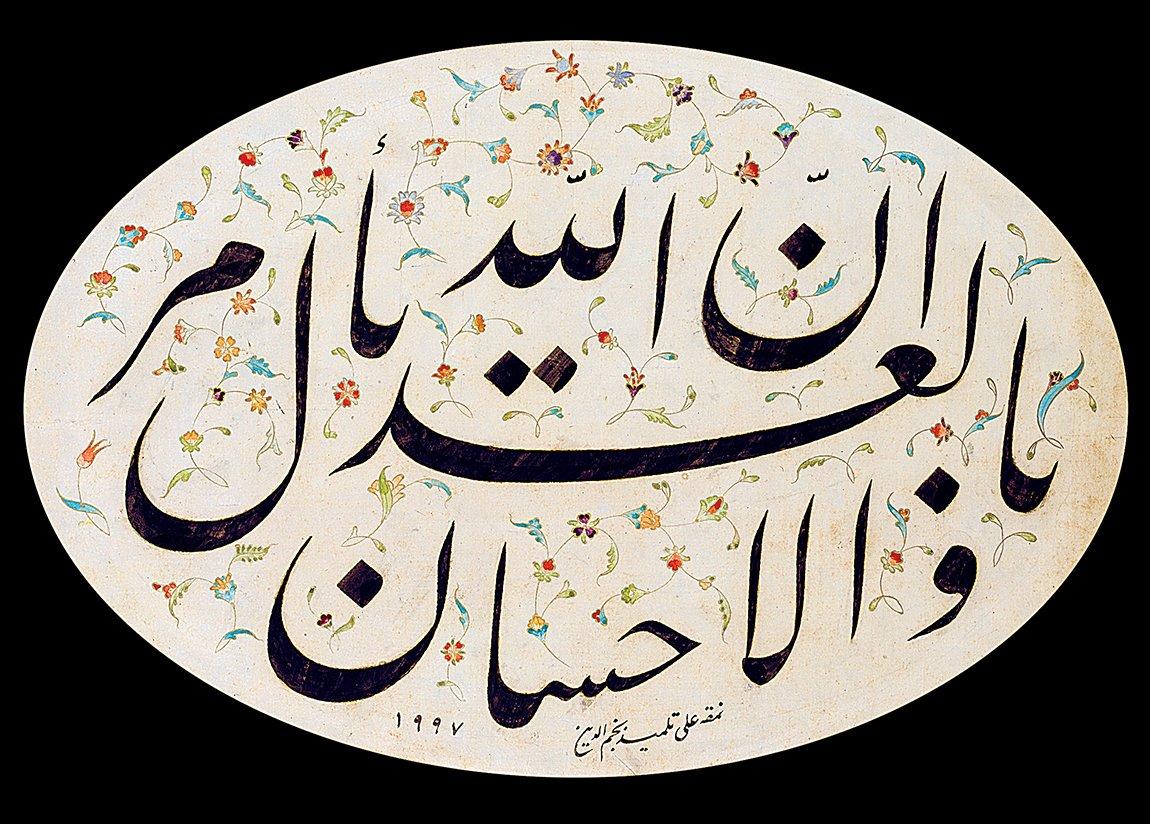 ان الله يأمر
بالعدل
والاحسان
نمقه علي تلميذ نجم الدين
١٩٩٧